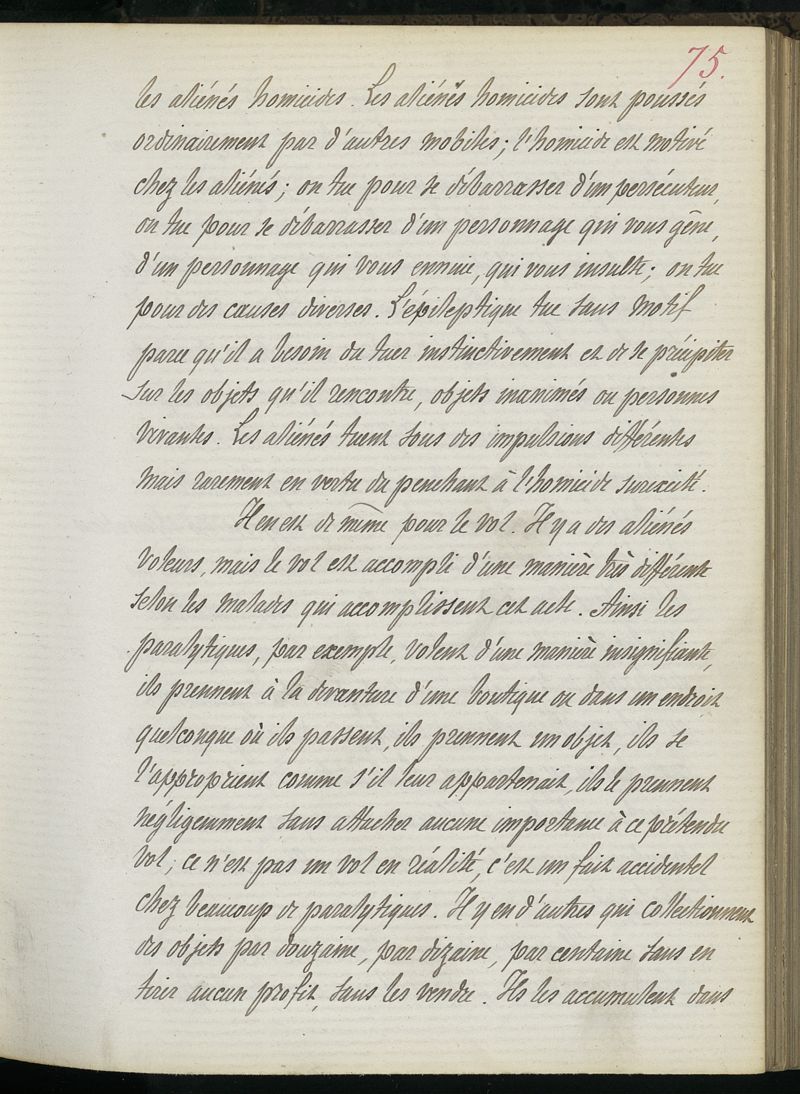 75.
les aliénés homicides. Les aliénés homicides sont poussés
ordinairement par d'autres mobiles; l'homicide est motivé
chez les aliénés; on tue pour se débarrasser d'un persécuteur,
on tue pour se débarrasser d'un personnage qui vous gêne,
d'un personnage qui vous ennuie, qui vous insulte; on tue
pour des causes diverses. L'épileptique tue sans motif
parce qu'il a besoin de tuer instinctivement et de se précipiter
sur les objets qu'il rencontre, objets inanimés ou personnes
vivantes. Les aliénés tuent sous des impulsions différentes
mais rarement en vertu du penchant à l'homicide surexcité.
Il en est de même pour le vol. Il y a des aliénés
voleurs, mais le vol est accompli d'une manière très différente
selon les malades qui accomplissent cet acte. Ainsi les
paralytiques, par exemple, volent d'une manière insignifiante,
ils prennent à la devanture d'une boutique ou dans un endroit
quelconque où ils passent, ils prennent un objet, ils se
l'approprient comme s'il leur appartenait, ils le prennent
négligemment sans attacher aucune importance à ce prétendu
vol, ce n'est pas un vol en réalité, c'est un fait accidentel
chez beaucoup de paralytiques. Il y en d'autres qui collectionnent
des objets par douzaine, par dizaine, par centaine sans en
tirer aucun profit, sans les vendre. Ils les accumulent dans